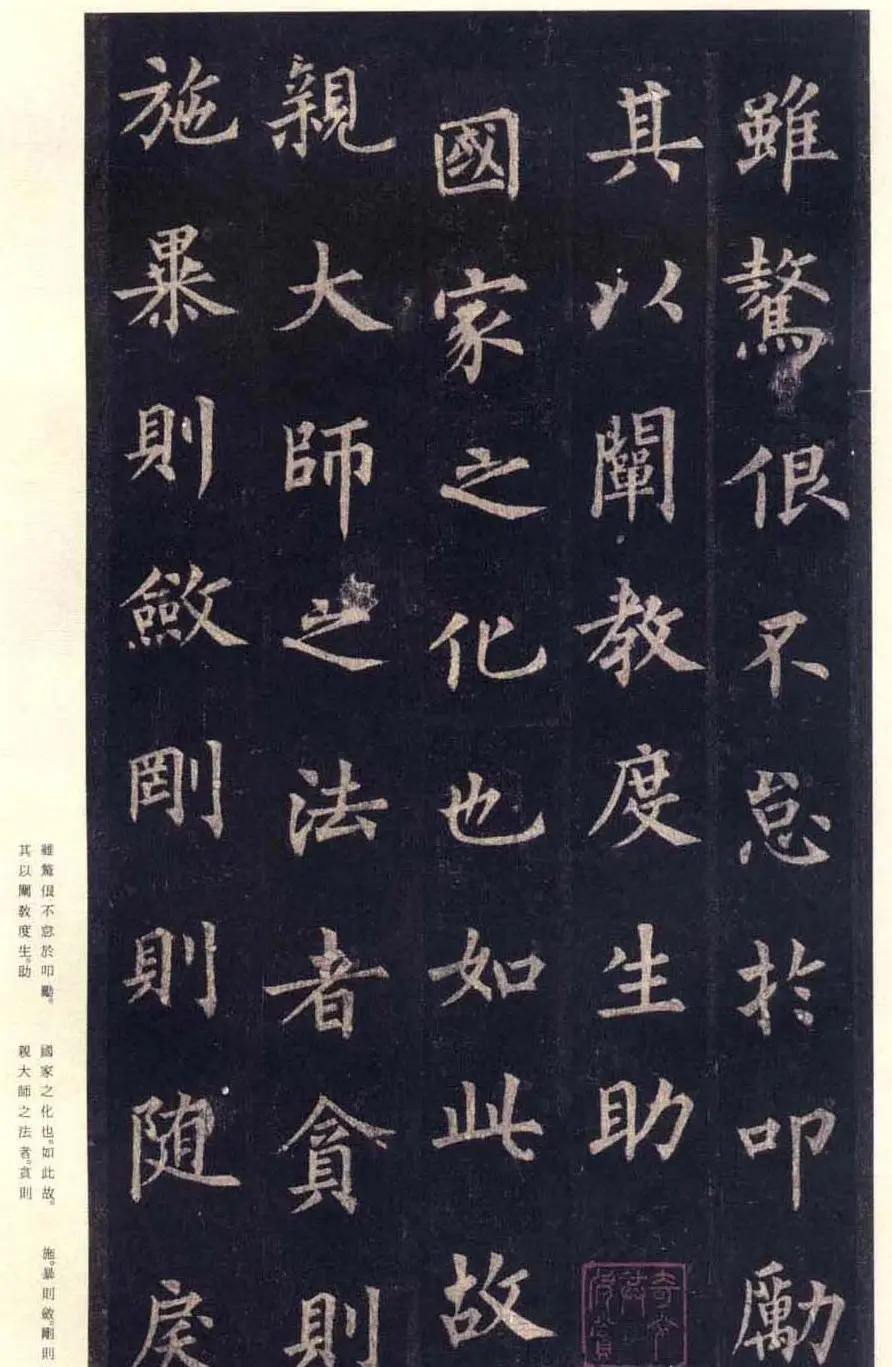 雖驁佷不怠於叩勵
其以闡教度生助
國家之化也如此故
親大師之法者貪則
施暴則斂剛則隨戾
雖驁佷不怠於叩勵。
其以闡教度生。助
國家之化也。如此故。
親大師之法者。貪則
施。暴則斂。剛則